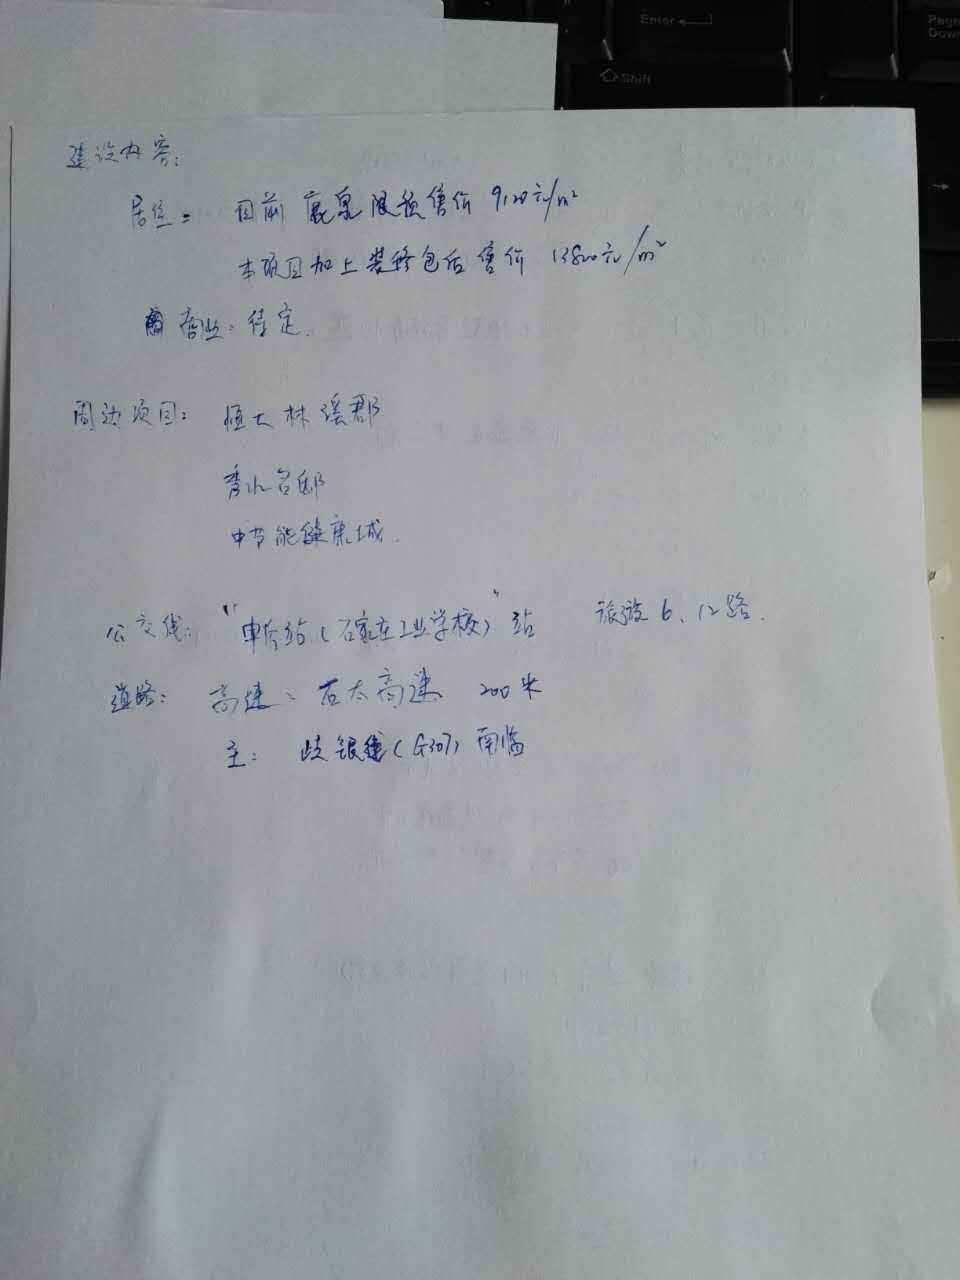 Enter
Shift
Page
Down
建设内容:
居住: 目前鹿泉限预售价 9120元/m²
本项目加上装修包后售价 13800元/m²
商业: 待定.
周边项目: 恒大林溪郡
秀水名邸
中节能健康城.
公交线: "申后站(石家庄工业学校)"站 旅游6、12路.
道路: 高速: 石太高速 200米
主: 歧银线(G307) 南临